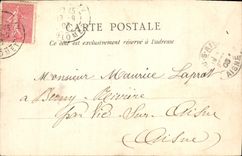 CARTE POSTALE
Ce côté est exclusivement réservé à l'adresse
Monsieur Maurice Laprat
à Berny-Rivière
par Vic-Sur-Aisne
(Aisne)
AISNE